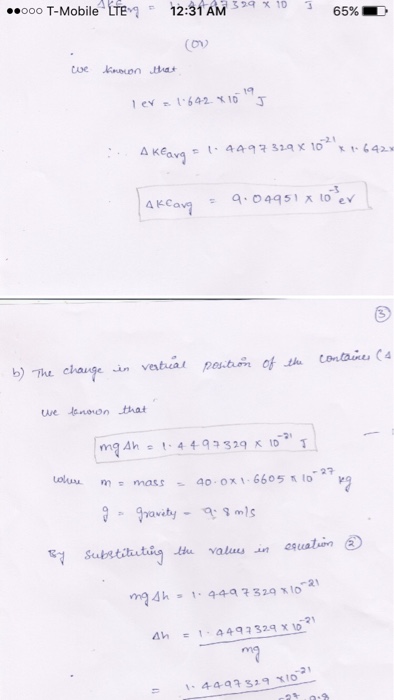 ●●○○○ T-Mobile LTE 12:31 AM 65%
(or)
we known that
1 ev = 1.642 × 10^-19 J
∴ ΔKEavg = 1.4497329 × 10^-21 × 1.642×
ΔKEavg = 9.04951 × 10^-3 ev
③
b) The change in vertical position of the container (Δ
we known that
mgΔh = 1.4497329 × 10^-21 J
where m = mass = 40.0 × 1.6605 × 10^-27 kg
g = gravity = 9.8 m/s
By substituting the values in equation ②
mgΔh = 1.4497329 × 10^-21
Δh = 1.4497329 × 10^-21
mg
= 1.4497329 × 10^-21